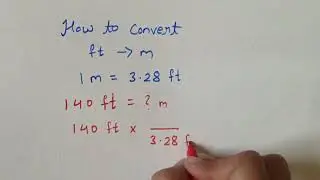 How to convert
ft → m
1 m = 3.28 ft
140 ft = ? m
140 ft × ___
3.28 f